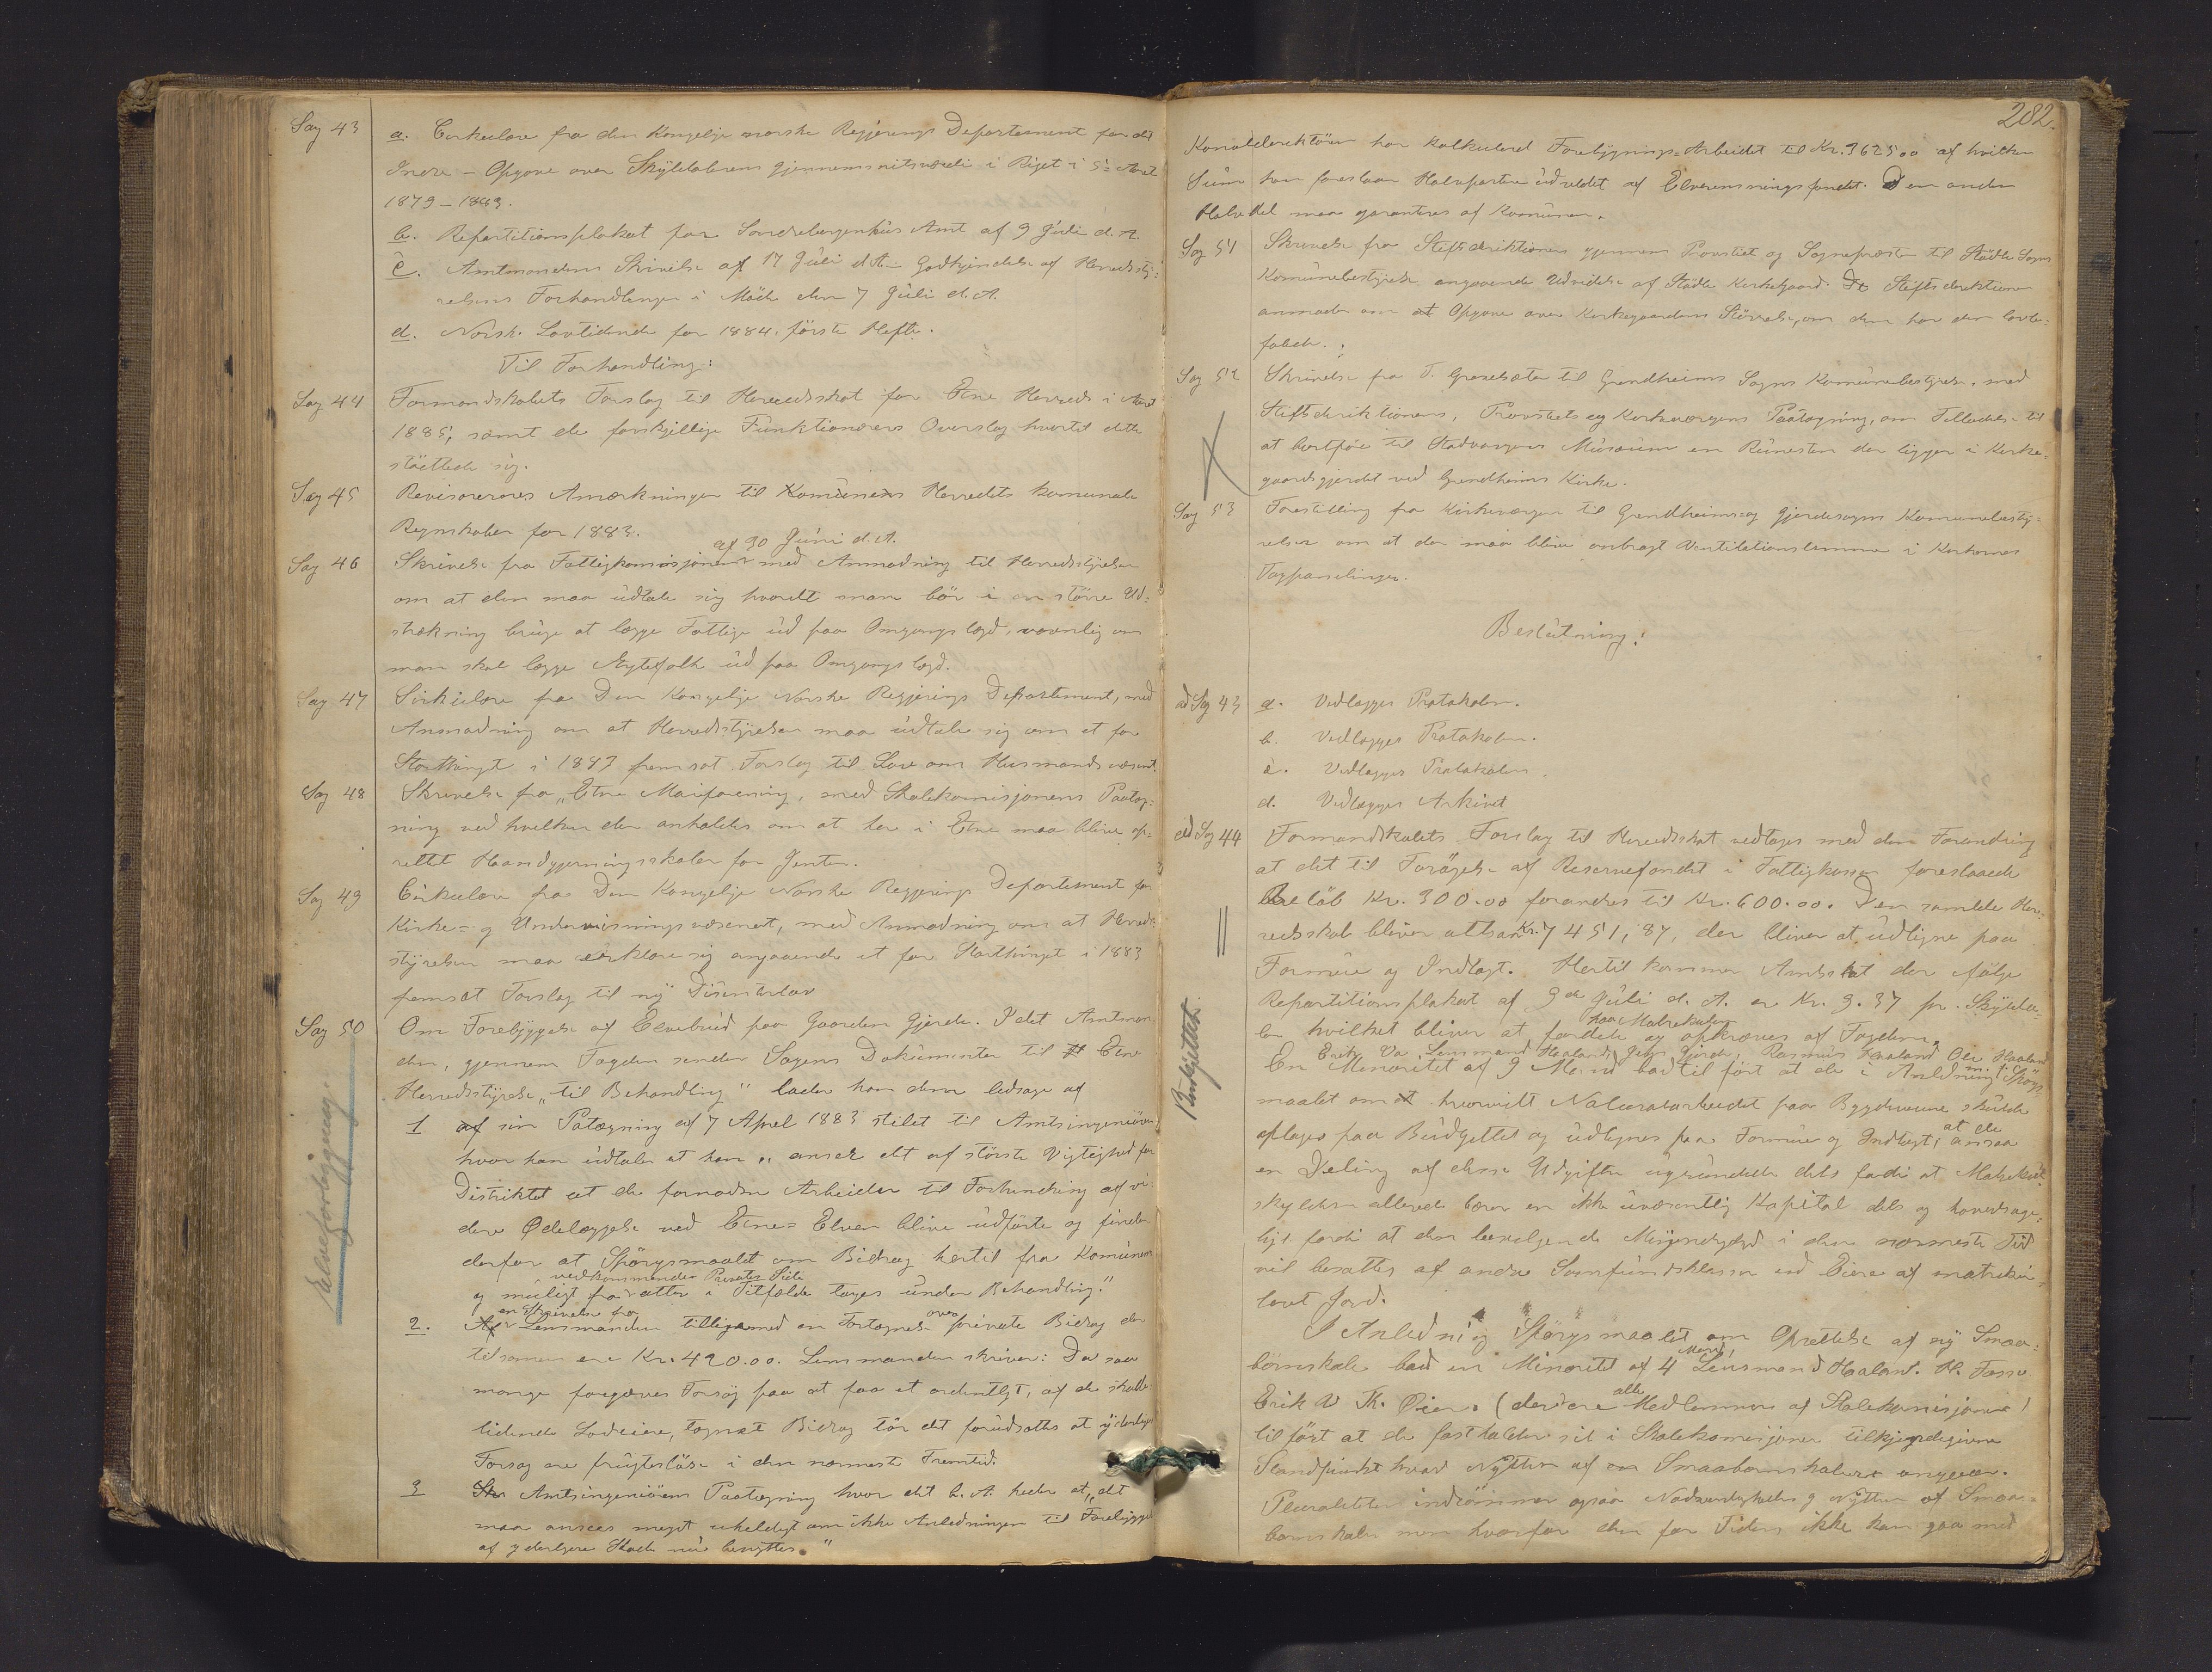 Sag 43 a. Cirkulære fra den Kongelige norske Regjerings Departement for det
Indre - Opgave over Skylddalerens gjennemsnitsværdi i Riget i 5: Aaret
1879-1883.
b. Repartitionsplakat for Søndrebergenhus Amt af 9 Juli d. A.
c. Amtmandens Skrivelse af 17 Juli d. A. - Godkjendelse af Herredssty-
relsens Forhandlinger i Møde den 7 Juli d. A.
d. Norsk Lovtidende for 1884. første Hefte.
Til Forhandling:
Sag 44 Formandskabets Forslag til Herredsskat for Etne Herred i Aaret
1885, samt de forskjellige Funktionærers Overslag hvortil dette
støttede sig.
Sag 45 Revisorernes Anmærkninger til Komunens Herredets komunale
Regnskaber for 1883.
af 30 Juni d. A.
Sag 46 Skrivelse fra Fattigkomisjonen med Anmodning til Herredsstyrelsen
om at den maa udtale sig hvorvidt man bør i en større Ud-
strækning bruge at lægge Fattige ud paa Omgangslægd, navnlig om
man skal lægge Nytefolk ud paa Omgangslægd.
Sag 47 Sirkulære fra Den Kongelige Norske Regjerings Departement, med
Anmodning om at Herredsstyrelsen maa udtale sig om et for
Storthinget i 1883 fremsat Forslag til Lov om Husmandsvæsenet.
Sag 48 Skrivelse fra "Etne Møiforening, med Skolekomisjonens Paateg-
ning ved hvilken der anholdes om at her i Etne maa blive op-
rettet Haandgjerningsskoler for Jenter.
Sag 49 Cirkulære fra Den Kongelige Norske Regjerings Departement for
Kirke- og Undervisningsvæsenet, med Anmodning om at Herreds-
styrelsen maa erklære sig angaaende et for Storthinget i 1883
fremsat Forslag til ny Disenterlov
Sag 50 Om Forebyggelse af Elvebrud paa Gaarden Gjerde. Idet Amtman-
den, gjennem Fogden sender Sagens Dokumenter til Etne
Herredsstyrelse "til Behandling" lader han dem ledsage af
Elveforbygning.
1 af sin Patægning af 7 April 1883 stilet til Amtsingeniøren
hvor han udtaler at han "anser det af største Vigtighed for
Distriktet at de fornødne Arbeider til Forhindring af vi-
dere Ødelæggelse ved Etne-Elven blive udførte og finder
derfor at Spørgsmaalet om Bidrag hertil fra Komunen
vedkommende Privates Side
og muligt fra atter i Tilfælde tages under Behandling."
en Skrivelse fra over
2. Af Lensmanden tilligemed en Fortegnelse private Bidrag der
tilsamen ere Kr. 420.00. Lensmanden skriver: Da saa
mange forgjæves Forsøg paa at faa et ordentligt, af de skade-
lidende Lodeiere, tegnet Bidrag tør det forudsættes at yderligere
Forsøg ere frugtesløse i den nærmeste Fremtid.
3 Amtsingeniørens Paategning hvor det b. A. heder at "det
maa ansees meget uheldigt om ikke Anledningen til Forebyggelse
af yderligere Skade nu benyttes."
282.
Kanaldirektøren har kalkuleret Forebygnings-Arbeidet til Kr. 3625.00 af hvilken
Sum han foreslaar Halvparten udredet af Elverensningsfondet. Den anden
Halvdel maa garanteres af Komunen.
Sag 51 Skrivelse fra Stiftsdirektionen gjennem Provstiet og Sognepræsten til Stødle Sogns
Komunebestyrelse angaaende Udvidelse af Stødle Kirkegaard. Stiftsdirektionen
anmoder om at Opgave over Kirkegaardens Størrelse, om den har den lovbe-
falede.
Sag 52 Skrivelse fra T. Gravelsæter til Grendheims Sogns Komunebestyrelse, med
Stiftsdirektionens, Provstiets og Kirkeværgens Paategning, om Tilladelse til
at bortføre til Stavangers Musæum en Runesten der ligger i Kirke-
gaardsgjerdet ved Grendheims Kirke.
Sag 53 Forestilling fra Kirkeværgen til Grendheims og Gjerdesogns Komunebesty-
relser om at der maa blive anbragt Ventilationslemmer i Kirkernes
Tagpanelinger.
Beslutning:
ad Sag 43 a. Vedlægges Protokolen.
b. Vedlægges Protokolen.
c. Vedlægges Protokolen.
d. Vedlægges Arkivet
ad Sag 44 Formandskabets Forslag til Herredsskat vedtages med den Forandring
at det til Forøgelse af Reservefondet i Fattigkassen foreslaaede
Beløb Kr. 300.00 forandres til Kr. 600.00. Den samlede Her-
redsskat bliver altsaa Kr. 7451,87, der bliver at udligne paa
Formue og Indtægt. Hertil kommer Amtsskat der ifølge
Repartitionsplakat af 9de Juli d. A. er Kr. 3.37 pr. Skyldda-
paa Matrikulen
ler hvilket bliver at fordele og opkræves af Fogden.
Erik Va, Lensmand Haaland, Gjerde, Rasmus Haaland Ole Haaland
Budgettet.
En Minoritet af 9 Mænd bad tilført at de i Anledning Spørgs-
maalet om at hvorvidt Naturalarbeidet paa Bygdeveiene skulde
optages paa Budgettet og udlignes paa Formue og Indtægt, at de ansaa
en Deling af disse Udgifter ugrundede dels fordi at Matrikul-
skylden allerede bærer en ikke uvæsentlig Kapital dels og hovedsage-
ligt fordi at den bevilgende Myndighed i den nærmeste Tid
vil besættes af andre Samfundsklasser end Eiere af matriku-
leret Jord.
I Anledning Spørgsmaalet om Oprettelse af ny Smaa-
børnskole bad en Minoritet af 4 Mænd, Lensmand Haaland. H. Fosse
Erik V Th. Øien. (der ere alle Medlemmer af Skolekomisjonen)
tilført at de fastholder sit i Skolekomisjonen tilkjendegivne
Standpunkt hvad Nytten af Smaabornskolen angaar.
Pluraliteten indrømmer ogsaa Nødvendigheden og Nytten af Smaa-
bornskoler men hvorfor den for Tiden ikke kan gaa med